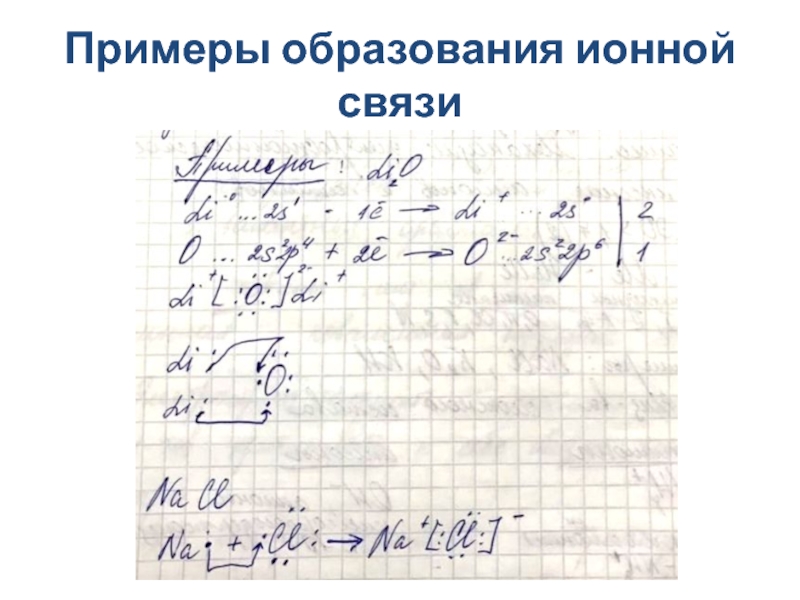 Примеры образования ионной
связи
Примеры: Li₂O
Li⁰ ...2s¹ - 1ē → Li⁺ ... 2s⁰ | 2
O ... 2s²2p⁴ + 2ē → O²⁻ ...2s²2p⁶ | 1
Li⁺[:Ö:]²⁻Li⁺
Li
:O:
Li
Na Cl
Na· + ·Cl: → Na⁺[:Cl:]⁻